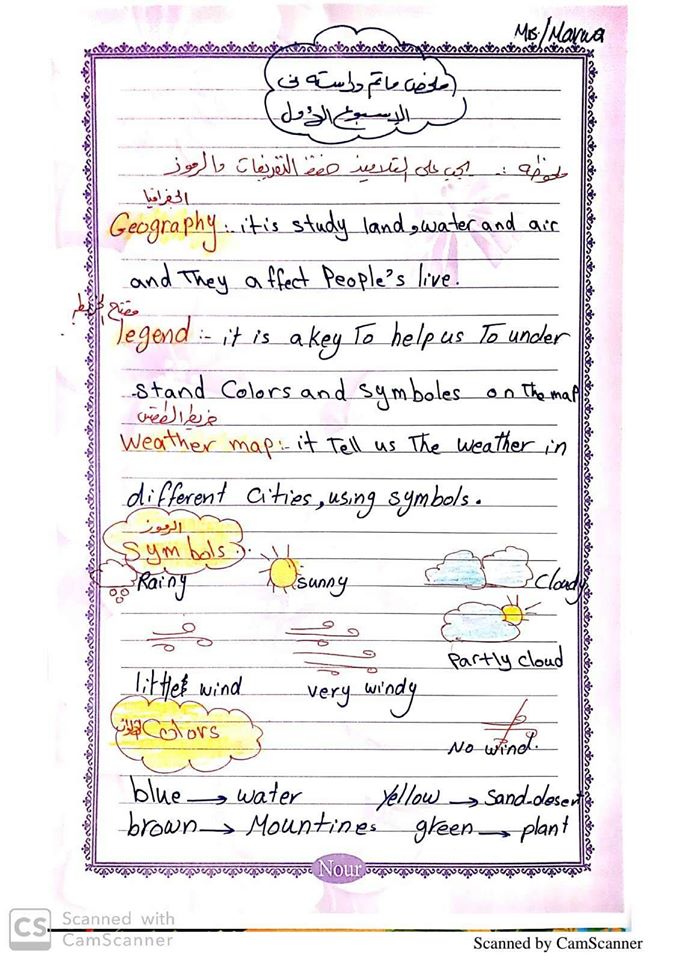 Mrs/Marwa
ملخص ما تم دراسته فى
الاسبوع الأول
ملحوظه :- يجب على التلاميذ حفظ التعريفات والرموز
الجغرافيا
Geography :- it is study land, water and air
and They affect People's live.
مفتاح الخريطه
legend :- it is a key To help us To under
stand Colors and Symboles on The map
خريطة الطقس
Weather map :- it Tell us The weather in
different Cities, using symbols.
الرموز
Symbols
Rainy sunny Cloudy
Partly cloud
little wind very windy
الالوان Colors
No wind.
blue → water yellow → sand-desert
brown → Mountines green → plant
Nour
CS Scanned with
CamScanner
Scanned by CamScanner